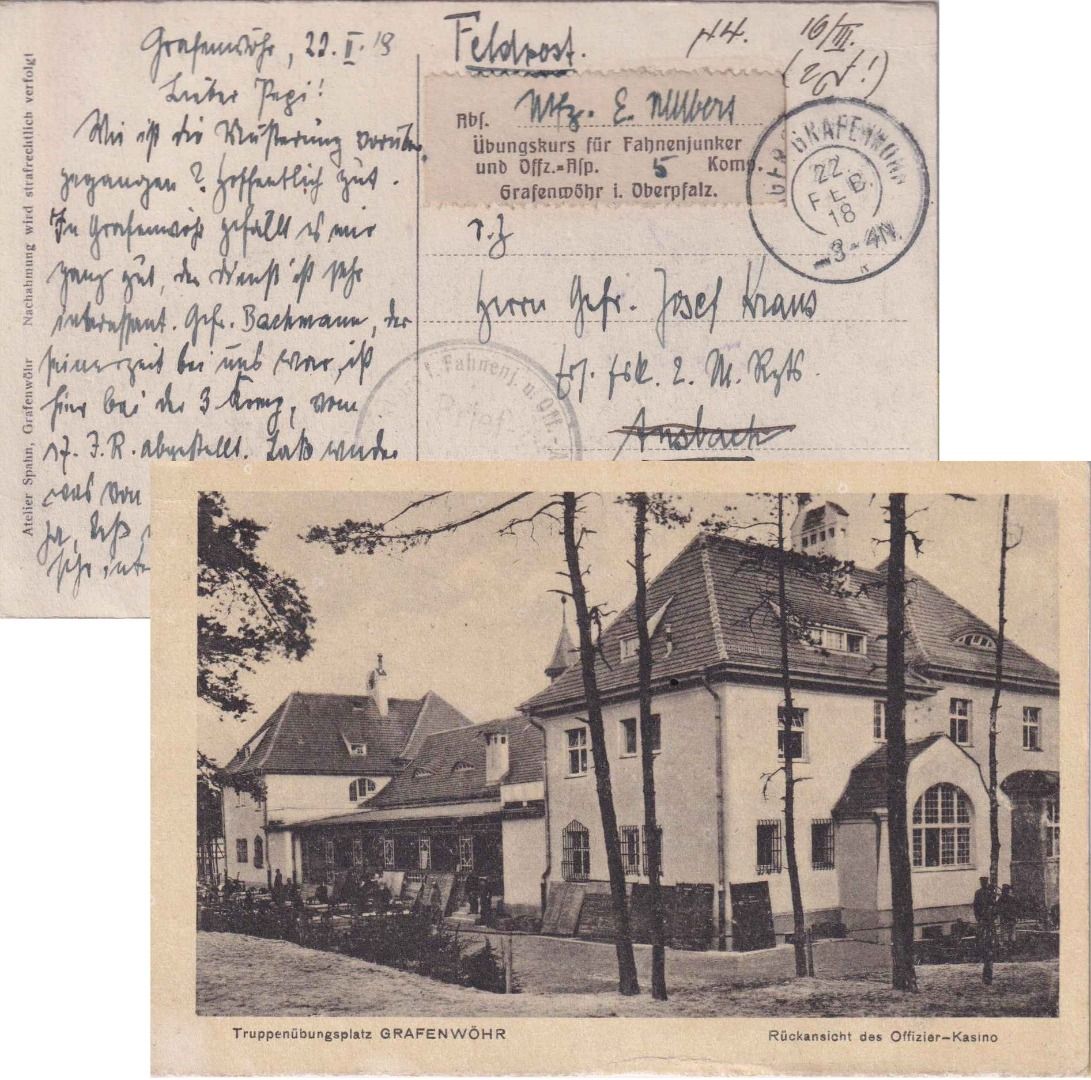 Grafenwöhr, 22. II. 18
Lieber Pepi!
Wie ist die Musterung vorüber-
gegangen? Hoffentlich gut.
In Grafenwöhr gefällt es mir
ganz gut, der Dienst ist sehr
interessant. Gefr. Bachmann, der
seinerzeit bei uns war, ist
hier bei der 3 Komp, vom
17. I.R. abgestellt. Laß wieder
was von
ja,
sehr inte
Feldpost.
44. 16/III.
Abs. E.
Übungskurs für Fahnenjunker
und Offz.=Asp. 5 Komp.
Grafenwöhr i. Oberpfalz.
LAGER GRAFENWÖHR
22.
FEB.
18
3-4N.
Herrn Gefr. Josef Kraus
Ers. Esk. 2. Rgts.
Ansbach
f. Fahnenj. u. Off.-A
Brief-
Atelier Spahn, Grafenwöhr Nachahmung wird strafrechtlich verfolgt
Truppenübungsplatz GRAFENWÖHR
Rückansicht des Offizier-Kasino